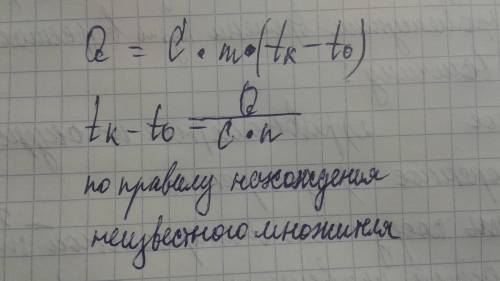 Q = C · m · (tк – t₀)
tк – t₀ = Q / C · m
по правилу нахождения
неизвестного множителя